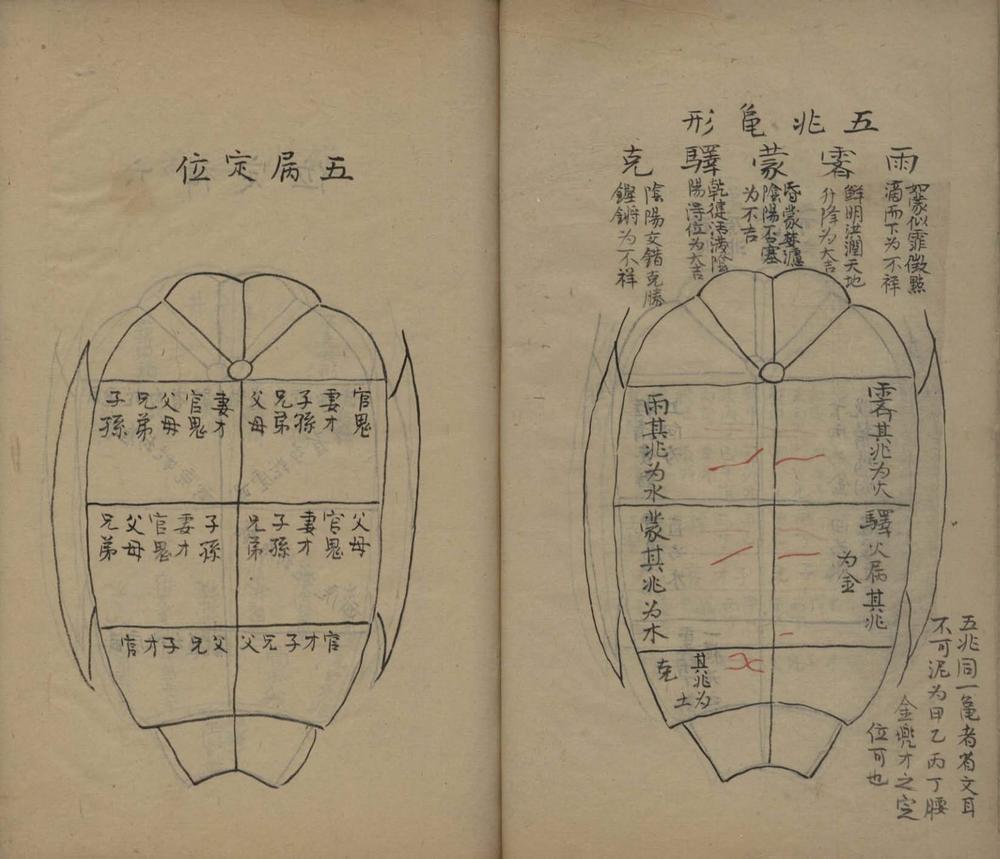 五兆亀形
雨霽蒙驛克
如蒙似霏微點
滴而下为不祥
鮮明洪潤天地
升降为大吉
昏蒙
陰陽不塞
为不吉
乾健活潑陰
陽得位为大吉
陰陽交錯克勝
鏗鏘为不祥
霽其兆为火
雨其兆为水
驛火属其兆
为金
蒙其兆为木
其兆为
土
克
五兆同一亀者省文耳
不可泥为甲乙丙丁腰
金兜才之定
位可也
五属定位
官鬼
妻才
子孫
兄弟
父母
妻才
官鬼
父母
兄弟
子孫
父母
官鬼
妻才
子孫
兄弟
子孫
妻才
官鬼
父母
兄弟
官才子兄父
父兄子才官